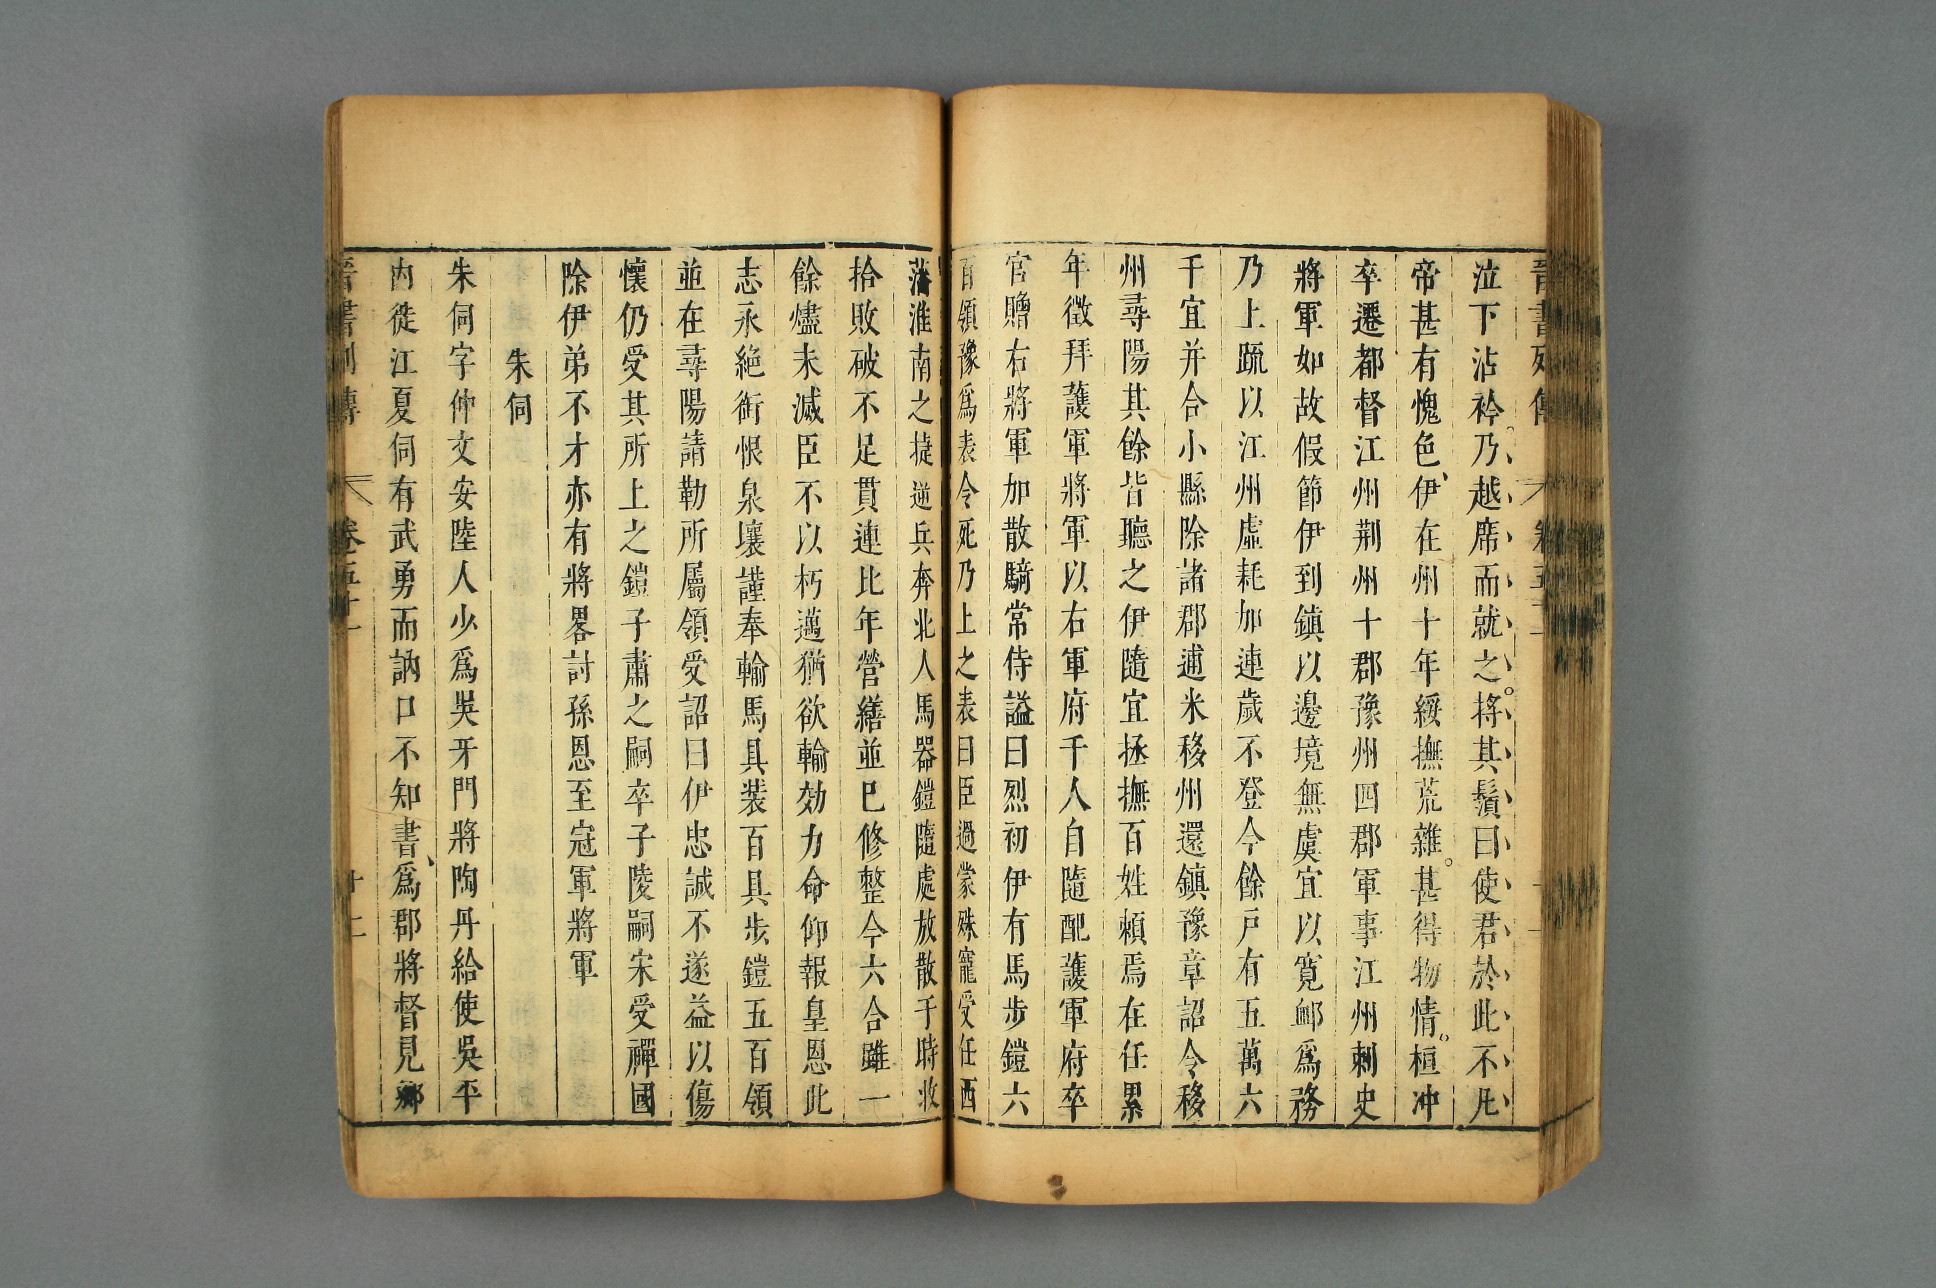 晉書列傳 卷五十一
泣下沾衿乃越席而就之。將其鬚曰使君於此不凡
帝甚有愧色、伊在州十年綏撫荒雜。甚得物情。桓冲
卒遷都督江州荆州十郡豫州四郡軍事江州刺史
將軍如故假節伊到鎮以邊境無虞宜以寬卹爲務
乃上疏以江州虛耗加連歲不登今餘戸有五萬六
千宜并合小縣除諸郡逋米移州還鎮豫章詔令移
州尋陽其餘皆聽之伊隨宜拯撫百姓賴焉在任累
年徵拜護軍將軍以右軍府千人自隨配護軍府卒
官贈右將軍加散騎常侍諡曰烈初伊有馬步鎧六
百領豫爲表令死乃上之表曰臣過蒙殊寵受任西
藩淮南之捷逆兵奔北人馬器鎧隨處放散于時收
拾敗破不足貫連比年營繕並已修整今六合雖一
餘燼未滅臣不以朽邁猶欲輸効力命仰報皇恩此
志永絕銜恨泉壤謹奉輸馬具裝百具步鎧五百領
並在尋陽請勒所屬領受詔曰伊忠誠不遂益以傷
懷仍受其所上之鎧子肅之嗣卒子陵嗣宋受禪國
除伊弟不才亦有將畧討孫恩至冦軍將軍
朱伺
朱伺字仲文安陸人少爲吳牙門將陶丹給使吳平
内徙江夏伺有武勇而訥口不知書、爲郡將督見鄉
晉書列傳 卷五十一 十二